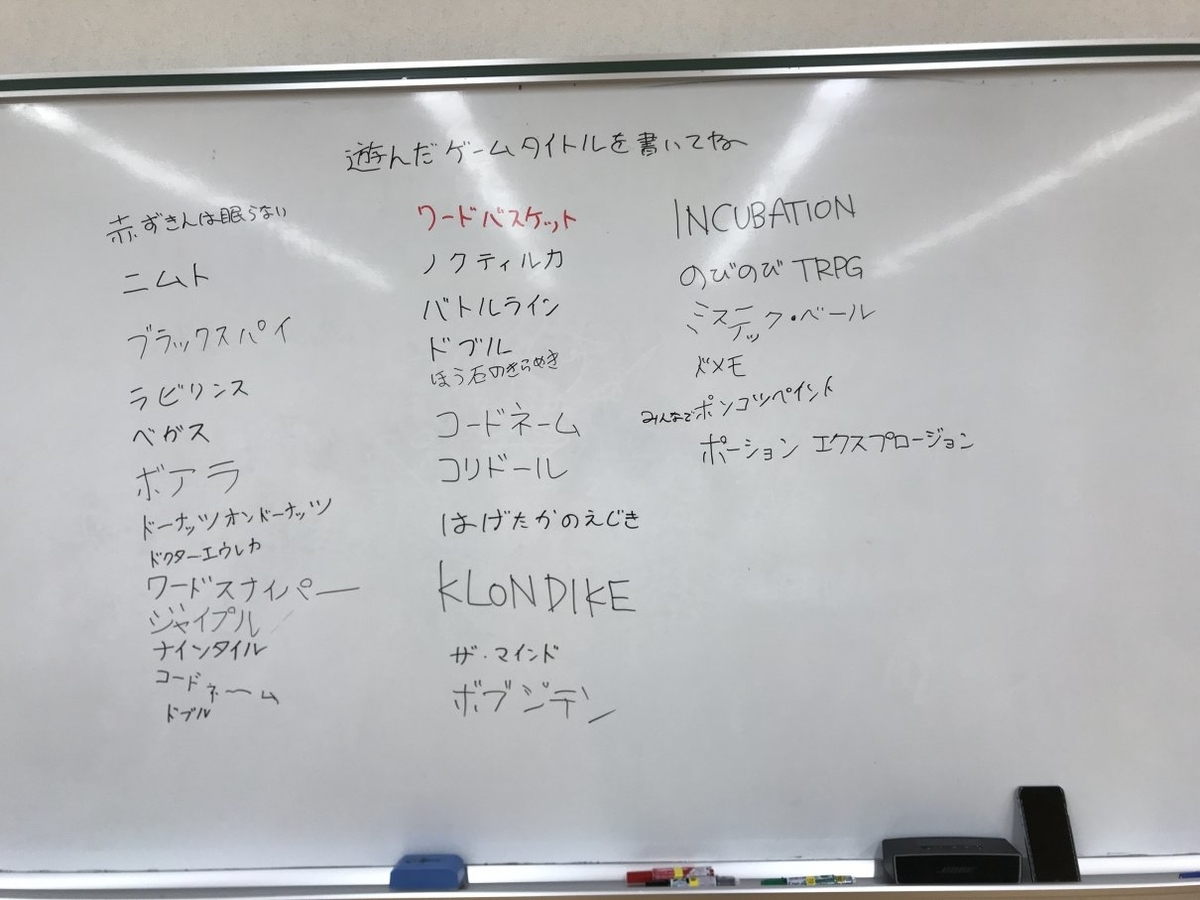 遊んだゲームタイトルを書いてね〜
赤ずきんは眠らない
ニムト
ブラックスパイ
ラビリンス
ベガス
ボアラ
ドーナッツオンドーナッツ
ドクターエウレカ
ワードスナイパー
ジャイプル
ナインタイル
コードネーム
ドブル
ワードバスケット
ノクティルカ
バトルライン
ドブル
ほう石のきらめき
コードネーム
コリドール
はげたかのえじき
KLONDIKE
ザ・マインド
ボブジテン
INCUBATION
のびのびTRPG
ミスティック・ベール
ドメモ
みんなでポンコツペイント
ポーション エクスプロージョン